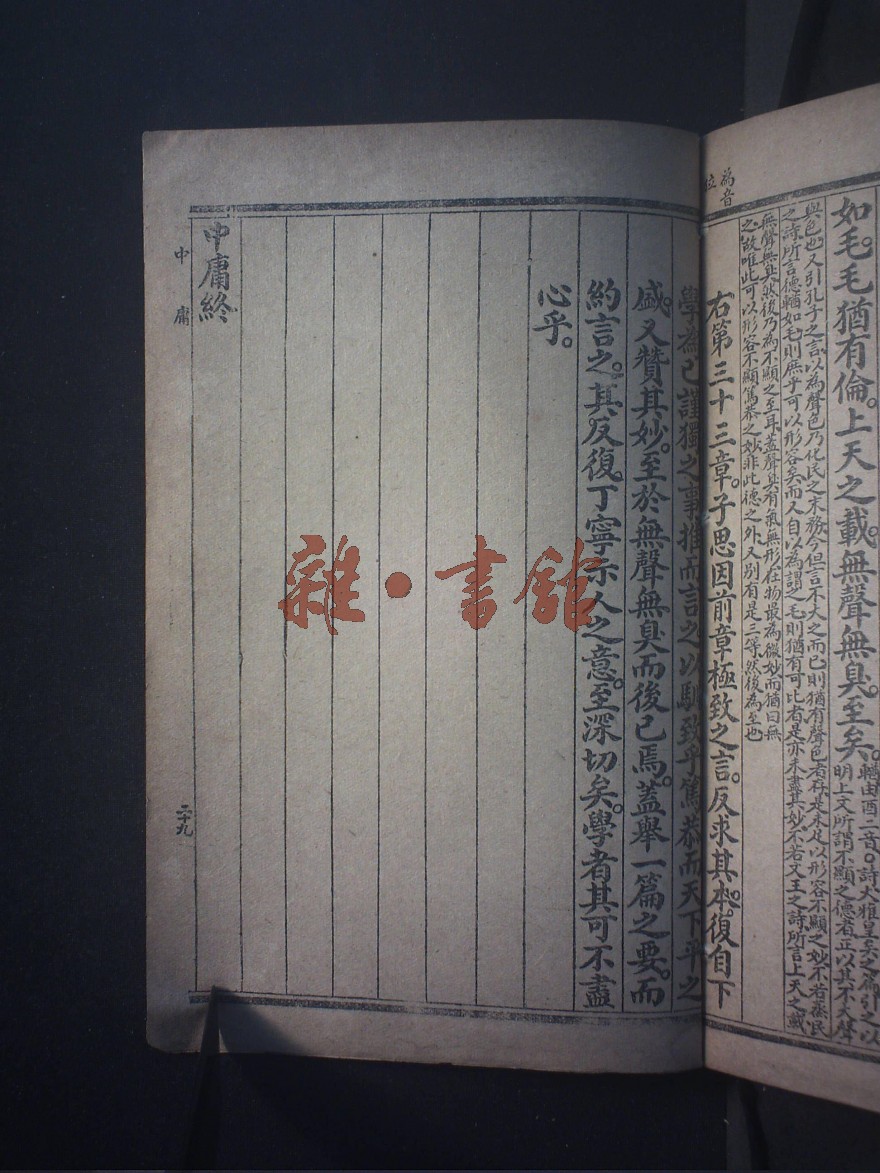 為音
位
如毛毛猶有倫。上天之載。無聲無臭。至矣。
輶由酉二音。詩大雅皇矣之篇引之以
明上文所謂不顯之德者正以其不大聲
與色也又引孔子之言以為聲色乃化民之末務今但言不大之而已則猶有聲色者存是未足以形容不顯之妙不若烝民
之詩所言德輶如毛則庶乎可以形容矣而又自以為謂之毛則猶有可比者是亦未盡其妙不若文王之詩所言上天之載
無聲無臭然後乃為不顯之至耳蓋聲臭有氣無形在物最為微妙而猶曰無
之故唯此可以形容不顯篤恭之妙非此德之外又別有是三等然後為至也
右第三十三章。子思因前章極致之言。反求其本。復自下
學為己謹獨之事推而言之以馴致乎篤恭而天下平之
盛。又贊其妙。至於無聲無臭而後已焉。蓋舉一篇之要。而
約言之。其反復。丁寧示人之意。至深切矣。學者其可不盡
心乎。
中庸終
中庸
二十九
雜·書館